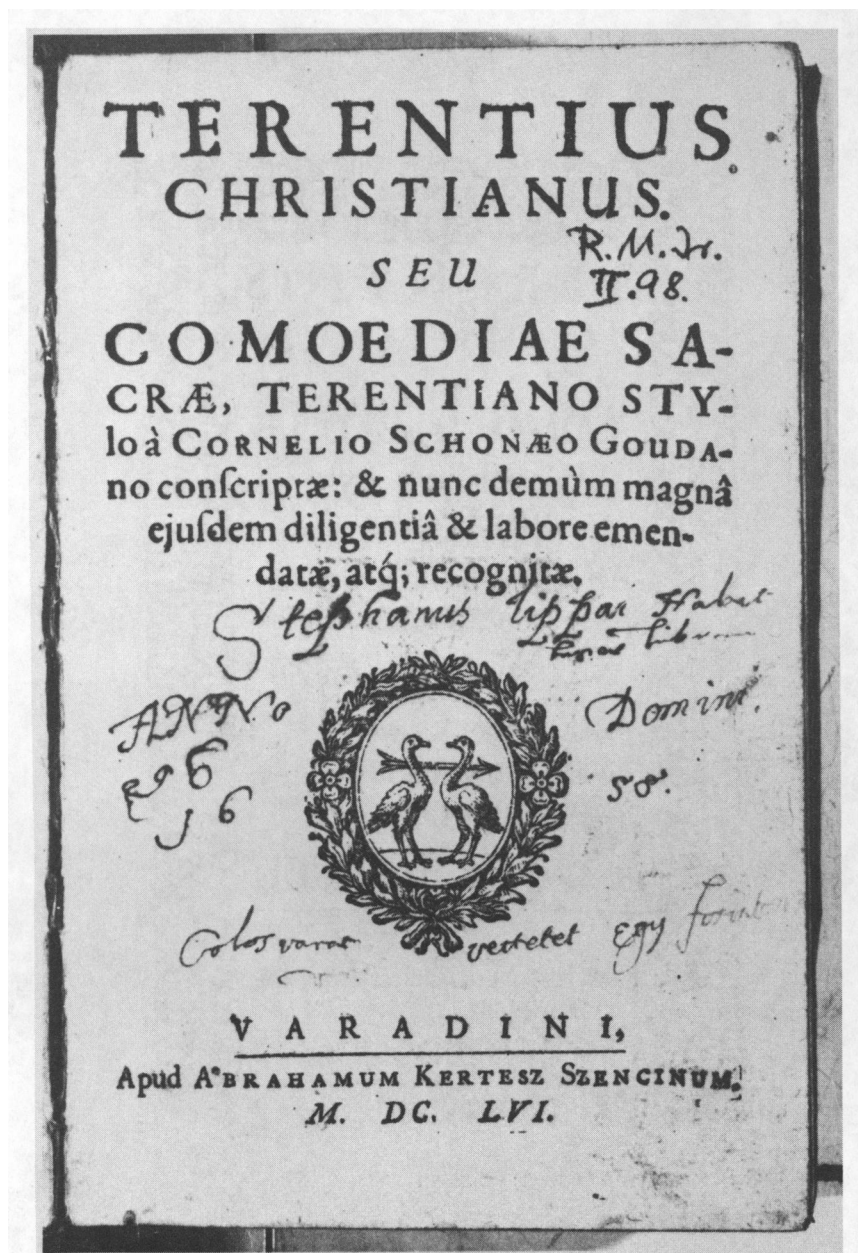 TERENTIUS
CHRISTIANUS.
R. M. Tr.
II. 98.
SEU
COMOEDIAE SA-
CRÆ, TERENTIANO STY-
lo à CORNELIO SCHONÆO GOUDA-
no conſcriptæ: & nunc demùm magnâ
ejuſdem diligentiâ & labore emen-
datæ, atq́; recognitæ.
Stephanus Habet
ANNO Domini.
16 58.
Colosvarat vertetet Egy
VARADINI,
Apud ABRAHAMUM KERTESZ SZENCINUM.
M. DC. LVI.